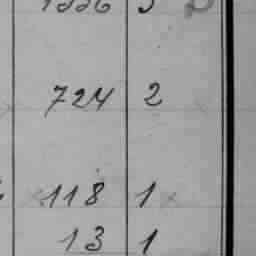 724 2
118 1
13 1